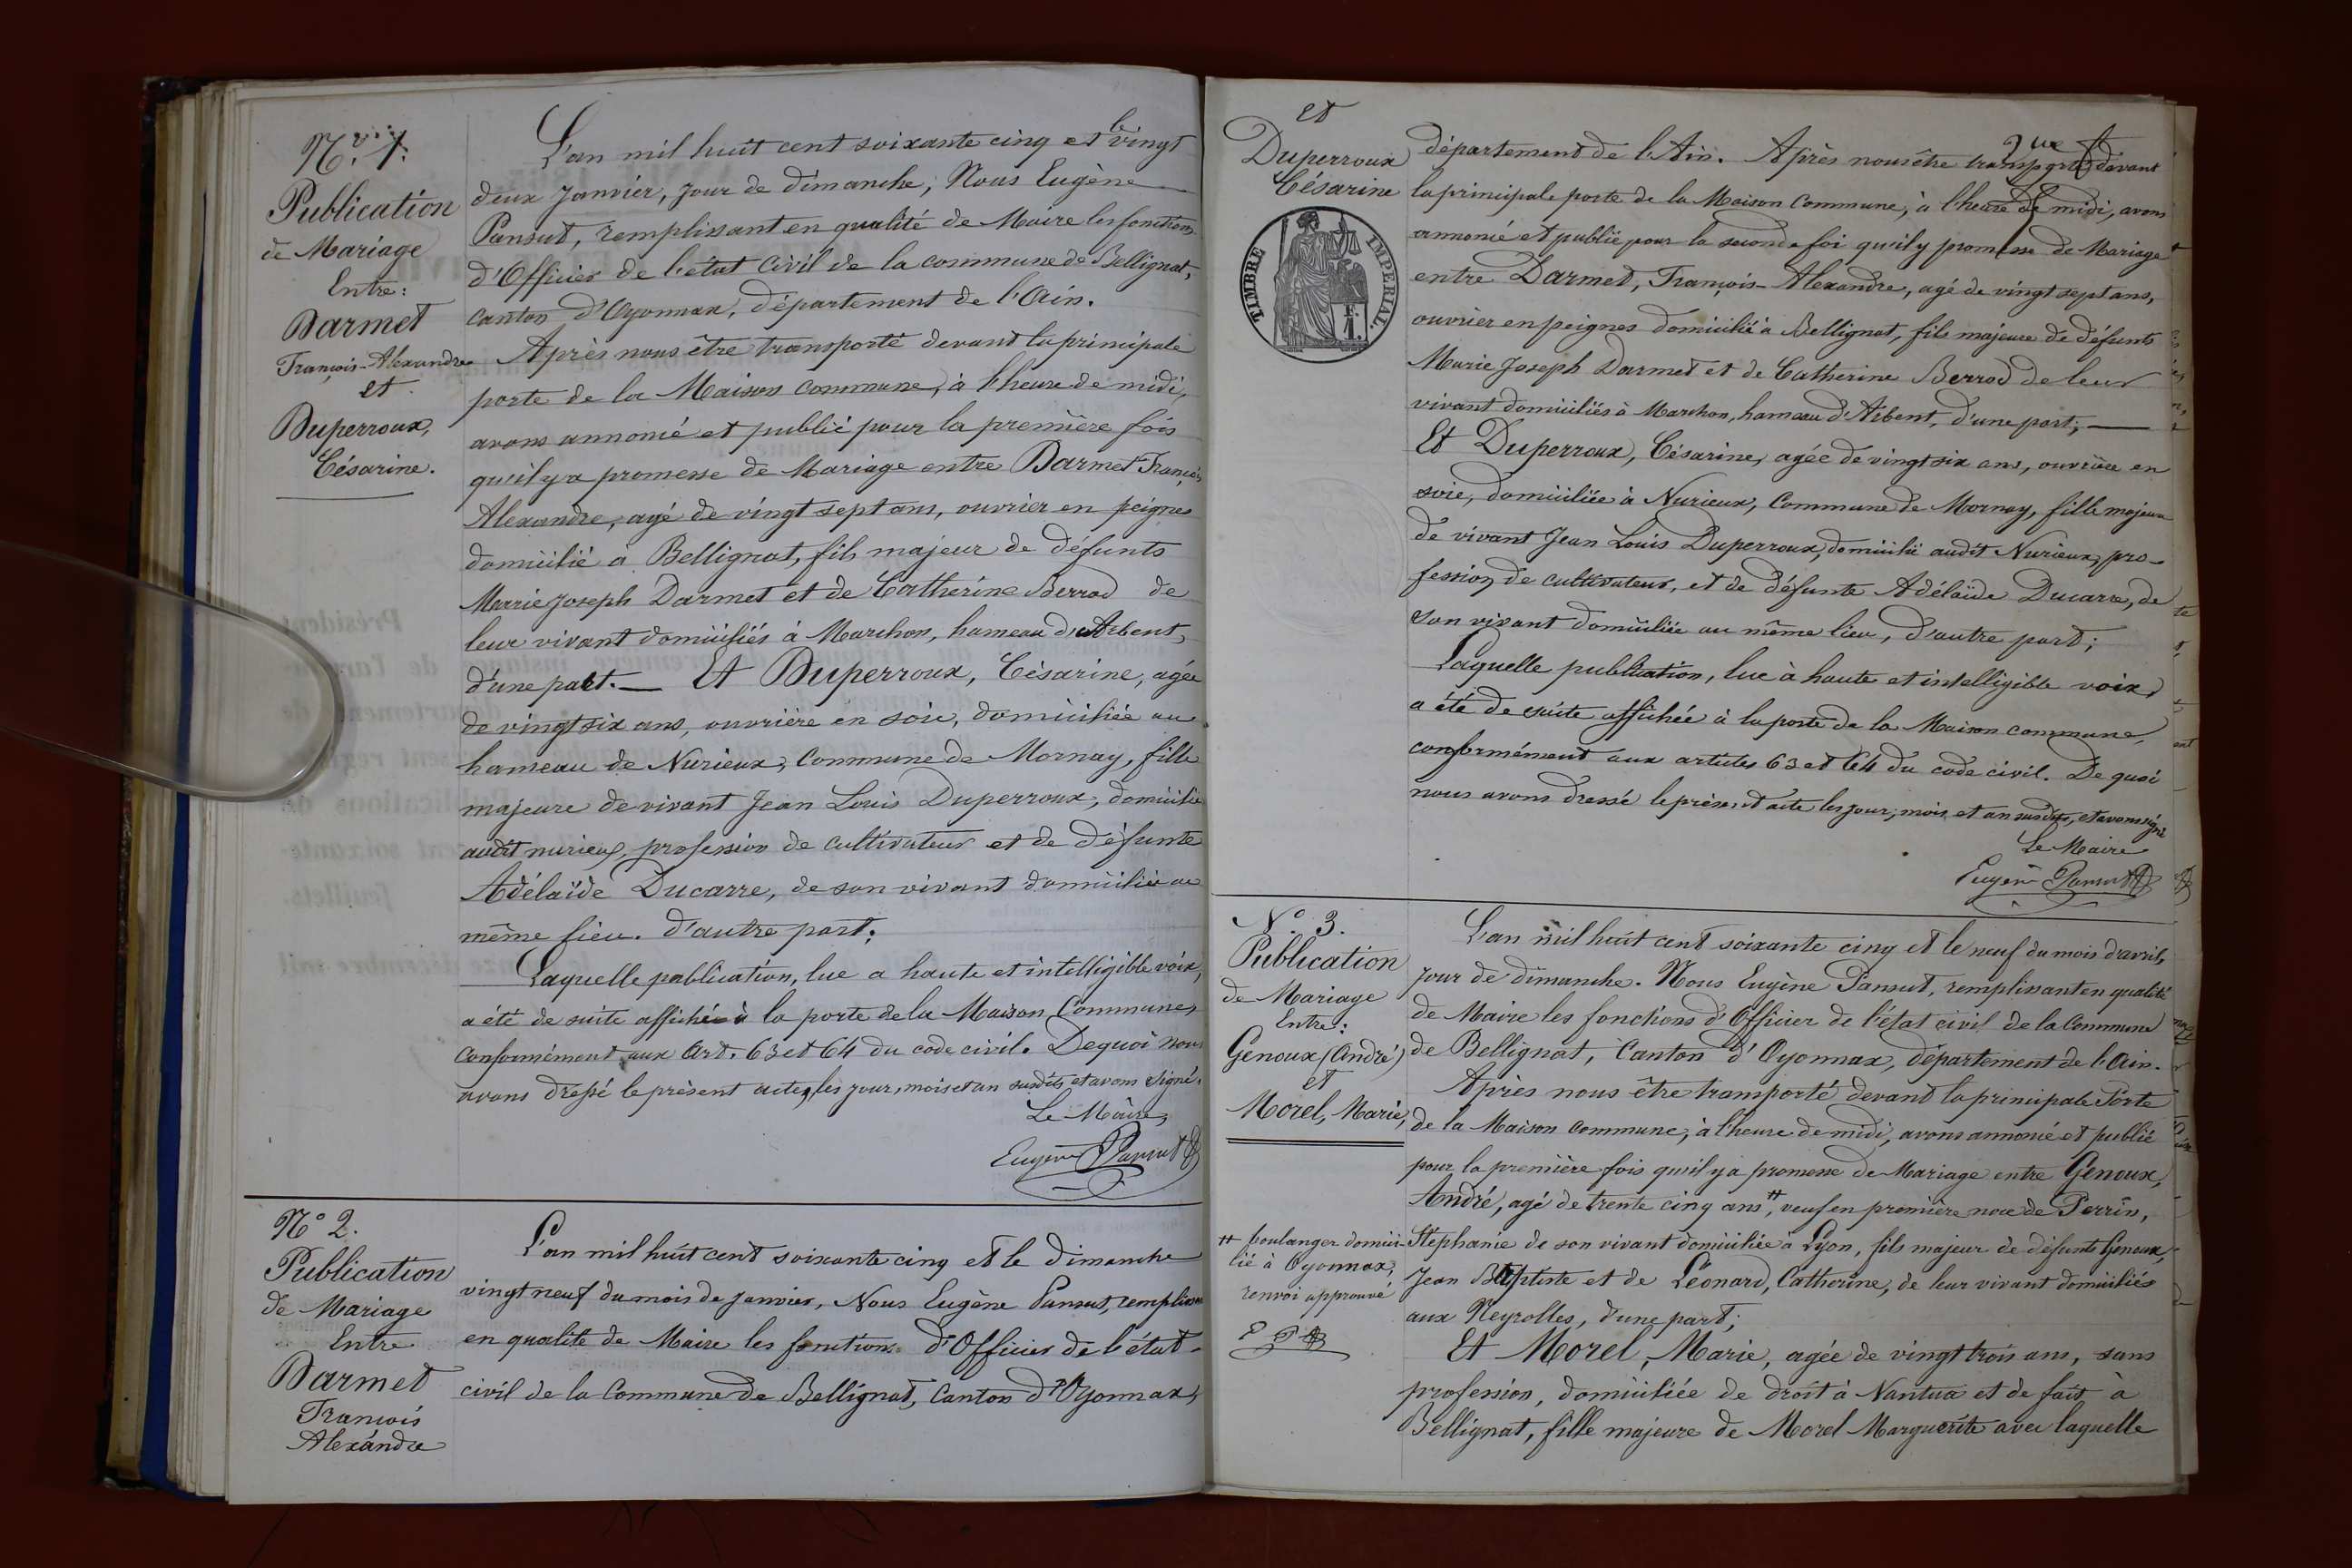 N.° 1.
Publication
de Mariage
Entre:
Darmet
François-Alexandre
et
Duperroux,
Césarine.
L'an mil huit cent soixante cinq et le vingt
deux Janvier, jour de dimanche, Nous Eugène
Pansut, remplissant en qualité de Maire les fonctions
d'Officier de l'état Civil de la commune de Bellignat,
canton d'Oyonnax, département de l'Ain.
Après nous être transporté devant la principale
porte de la Maison commune, à l'heure de midi,
avons annoncé et publié pour la première fois
qu'il y a promesse de Mariage entre Darmet François
Alexandre, agé de vingt sept ans, ouvrier en peignes
domicilié à Bellignat, fils majeur de défunts
Marie Joseph Darmet et de Catherine Berrod de
leur vivant domiciliés à Marchon, hameau d'Arbent,
d'une part. — Et Duperroux, Césarine, agée
de vingt six ans, ouvrière en soie, domiciliée au
hameau de Nurieux, Commune de Mornay, fille
majeure de vivant Jean Louis Duperroux, domicilié
audit nurieux, profession de cultivateur et de défunte
Adélaïde Ducarre, de son vivant domiciliée au
même lieu. d'autre part;
Laquelle publication, lue a haute et intelligible voix,
a été de suite affichée à la porte de la Maison Commune,
conformément aux Art. 63 et 64 du code civil. De quoi nous
avons dressé le présent acte, les jour, mois et an susdits et avons signé.
Le Maire,
Eugène Pansut
N° 2.
Publication
de Mariage
Entre
Darmet
François
Alexandre
L'an mil huit cent soixante cinq et le dimanche
vingt neuf du mois de janvier, Nous Eugène Pansut, remplissant
en qualité de Maire les fonctions d'Officier de l'état
civil de la Commune de Bellignat, Canton d'Oyonnax,
et
Duperroux
Césarine
TIMBRE IMPERIAL.
département de l'Ain. Après nous être transporté devant
la principale porte de la Maison commune, à l'heure de midi, avons
annoncé et publié pour la seconde foi qu'il y promesse de Mariage
entre Darmet, François-Alexandre, agé de vingt sept ans,
ouvrier en peignes domicilié à Bellignat, fils majeure de défunts
Marie Joseph Darmet et de Catherine Berrod de leur
vivant domiciliés à Marchon, hameau d'Arbent, d'une part; —
Et Duperroux, Césarine, agée de vingt six ans, ouvrière en
soie, domiciliée à Nurieux, Commune de Mornay, fille majeure
de vivant Jean Louis Duperroux, domicilié audit Nurieux, pro-
fession de cultivateur, et de défunte Adélaïde Ducarre, de
son vivant domiciliée au même lieu, d'autre part;
Laquelle publication, lue à haute et intelligible voix,
a été de suite affichée à la porte de la Maison commune,
conformément aux articles 63 et 64 du code civil. De quoi
nous avons dressé le présent acte les jour, mois et an susdits, et avons signé
Le Maire
Eugène Pansut
N° 3.
Publication
de Mariage
Entre:
Genoux (André)
et
Morel, Marie,
L'an mil huit cent soixante cinq et le neuf du mois d'avril,
jour de dimanche. Nous Eugène Pansut, remplissant en qualité
de Maire les fonctions d'Officier de l'état civil de la Commune
de Bellignat, Canton d'Oyonnax, département de l'Ain.
Après nous être transporté devant la principale Porte
de la Maison commune, à l'heure de midi, avons annoncé et publié
pour la première fois qu'il y a promesse de Mariage entre Genoux,
André, agé de trente cinq ans #, veuf en première noce de Perrin,
Stephanie de son vivant domiciliée à Lyon, fils majeur de défunts Genoux,
Jean Baptiste et de Léonard, Catherine, de leur vivant domiciliés
aux Neyrolles, d'une part;
Et Morel, Marie, agée de vingt trois ans, sans
profession, domiciliée de droit à Nantua et de fait à
Bellignat, fille majeure de Morel Marguerite avec laquelle
# boulanger domici-
lié à Oyonnax,
renvoi approuvé
E P